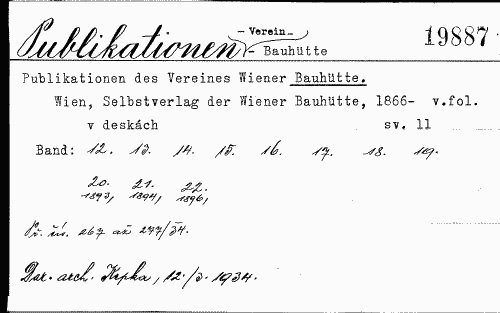 Publikationen - Verein - - Bauhütte 19887
Publikationen des Vereines Wiener Bauhütte.
Wien, Selbstverlag der Wiener Bauhütte, 1866- v.fol.
v deskách sv. 11
Band: 12. 13. 14. 15. 16. 17. 18. 19.
20. 21. 22.
1893, 1894, 1896,
Př. čís. 267 až 277/34.
Dar. arch. Krpka, 12./3. 1934.